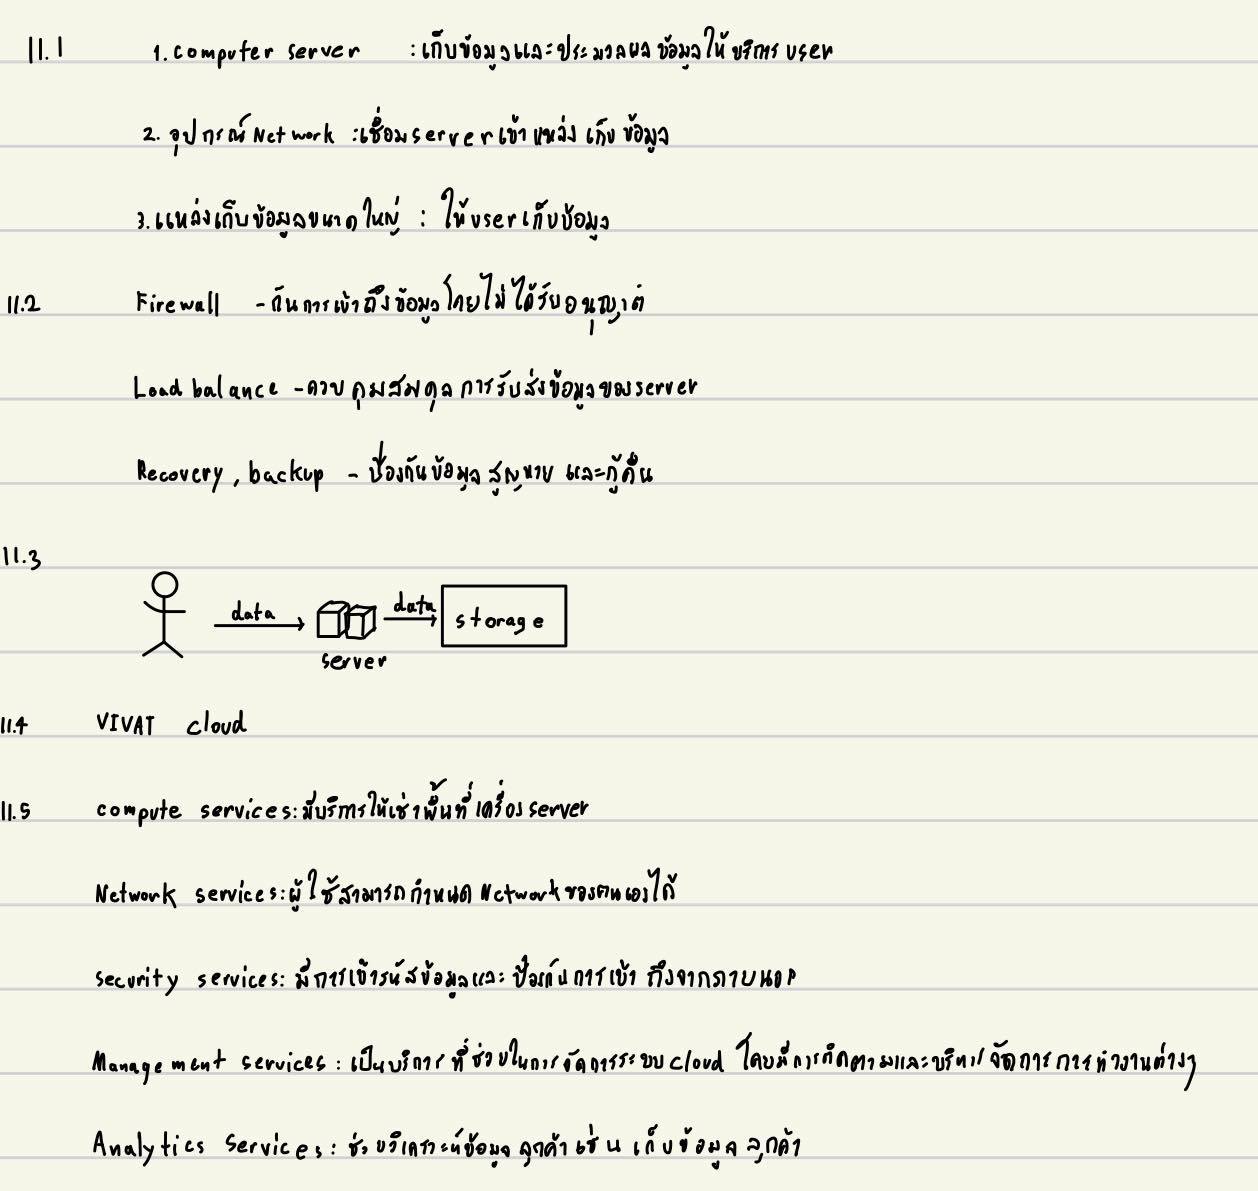 11.1 1. computer server : เก็บข้อมูลและประมวลผลข้อมูลให้บริการ user
2. อุปกรณ์ Network : เชื่อม server เข้าแหล่งเก็บข้อมูล
3. แหล่งเก็บข้อมูลขนาดใหญ่ : ให้ user เก็บข้อมูล
11.2 Firewall - กันการเข้าถึงข้อมูลโดยไม่ได้รับอนุญาต
Load balance - ควบคุมสมดุลการรับส่งข้อมูลของ server
Recovery, backup - ป้องกันข้อมูลสูญหาย และกู้คืน
11.3
data
data
storage
server
11.4 VIVAT cloud
11.5 compute services: มีบริการให้เช่าพื้นที่เครื่อง server
Network services: ผู้ใช้สามารถกำหนด Network ของตนเองได้
security services: มีการเข้ารหัสข้อมูลและป้องกันการเข้าถึงจากภายนอก
Management services: เป็นบริการที่ช่วยในการจัดการระบบ cloud โดยมีการติดตามและบริหารจัดการการทำงานต่างๆ
Analytics Services: ช่วยวิเคราะห์ข้อมูลลูกค้า เช่น เก็บข้อมูลลูกค้า